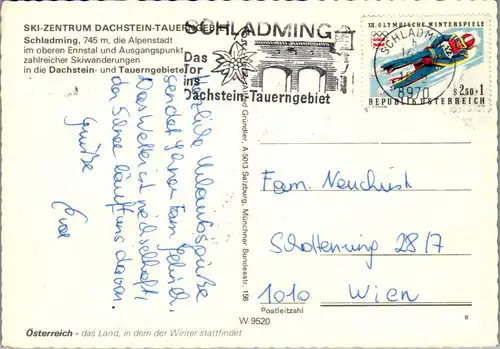 SKI-ZENTRUM DACHSTEIN-TAUERNGEBIET
Schladming, 745 m, die Alpenstadt
im oberen Ennstal und Ausgangspunkt
zahlreicher Skiwanderungen
in die Dachstein- und Tauerngebiete
SCHLADMING
Das
Tor
ins
Dachstein-Tauerngebiet
SCHLADMING
8970
XII. OLYMPISCHE WINTERSPIELE
S 2.50+1
REPUBLIK ÖSTERREICH
Herzliche Urlaubsgrüße
sendet Ihnen Fam.
Das Wetter ist
der Schnee läuft uns davon.
Grüße
Gründler, A-5013 Salzburg, Münchner Bundesstr. 156
Fam. Neuchrist
Schottenring 28/7
1010 Wien
Postleitzahl
W 9520
Österreich - das Land, in dem der Winter stattfindet